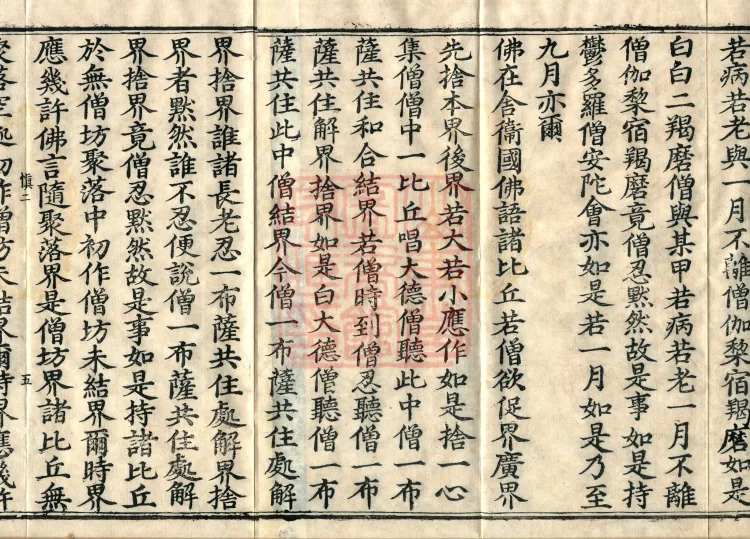 若病若老與一月不離僧伽棃宿羯磨如是
白白二羯磨僧與某甲若病若老一月不離
僧伽棃宿羯磨竟僧忍黙然故是事如是持
鬱多羅僧安陀會亦如是若一月如是乃至
九月亦爾
佛在舍衞國佛語諸比丘若僧欲促界廣界
先捨本界後界若大若小應作如是捨一心
集僧僧中一比丘唱大德僧聽此中僧一布
薩共住和合結界若僧時到僧忍聽僧一布
薩共住解界捨界如是白大德僧聽僧一布
薩共住此中僧結界今僧一布薩共住處解
界捨界誰諸長老忍一布薩共住處解界捨
界者黙然誰不忍便說僧一布薩共住處解
界捨界竟僧忍黙然故是事如是持諸比丘
於無僧坊聚落中初作僧坊未結界爾時界
應幾許佛言隨聚落界是僧坊界諸比丘無
慎二 五
聚落空處初作僧坊未結界爾時界應幾許